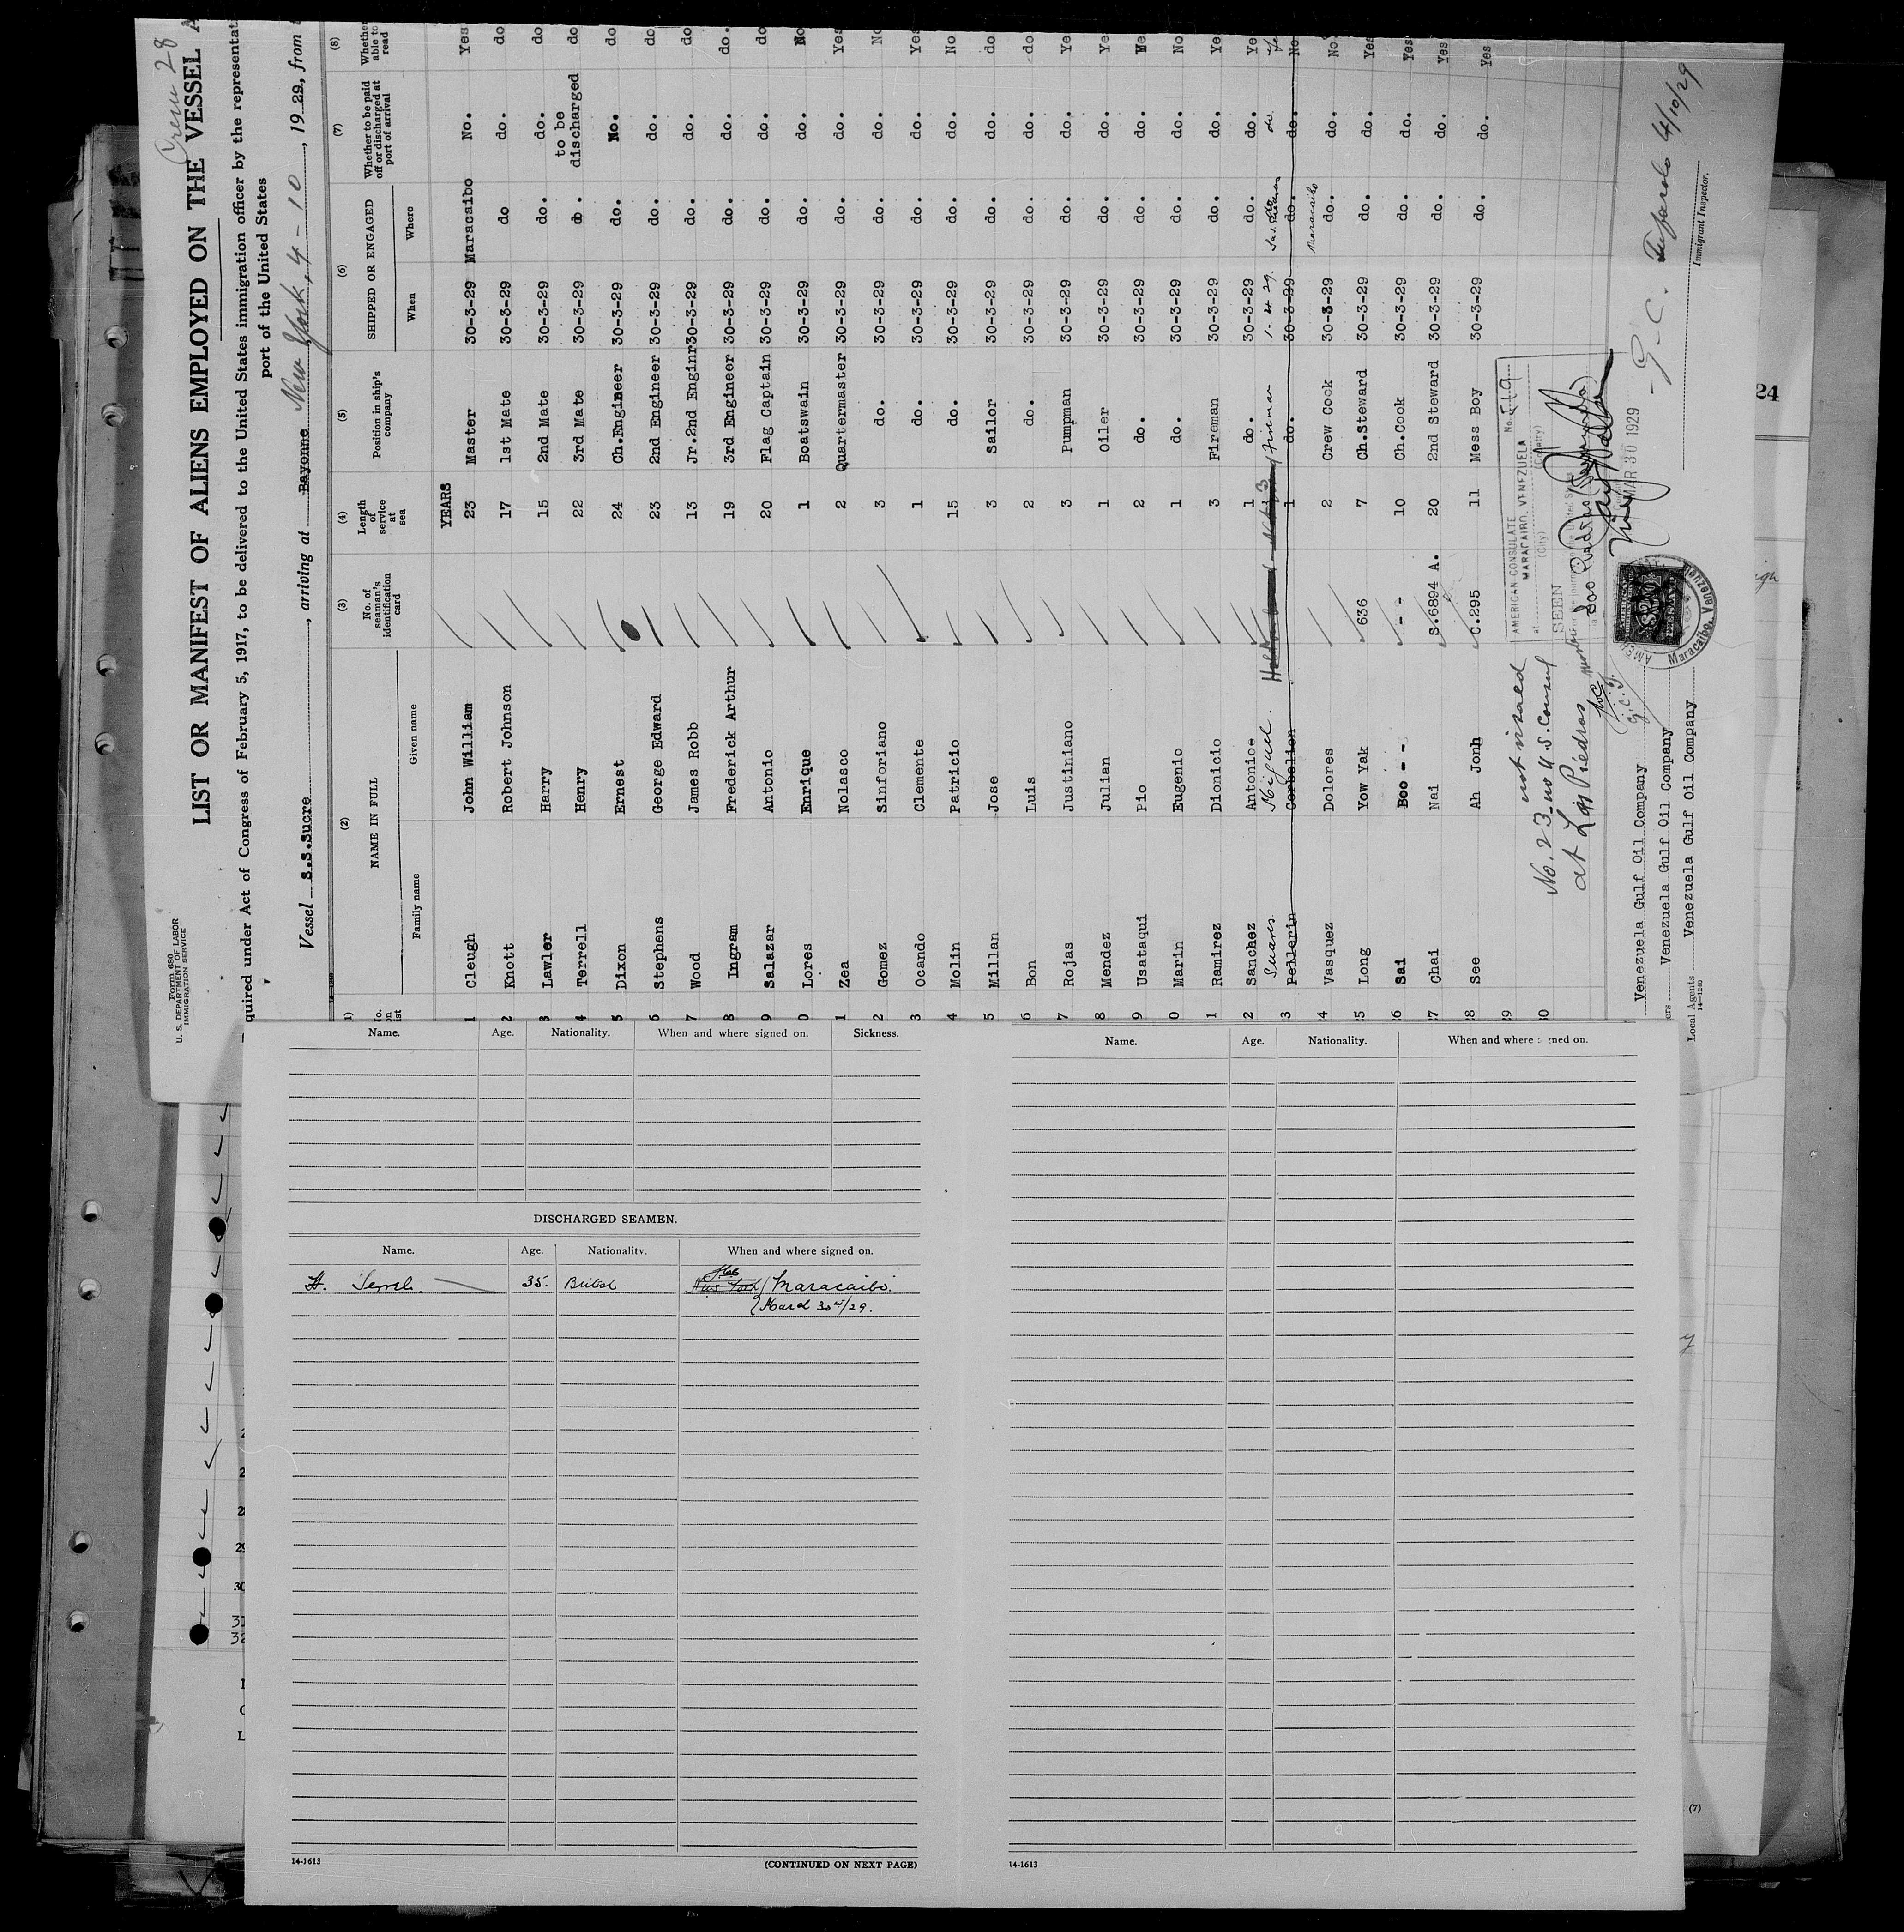 Crew 28
Form 680
U. S. DEPARTMENT OF LABOR
IMMIGRATION SERVICE
LIST OR MANIFEST OF ALIENS EMPLOYED ON THE VESSEL A
quired under Act of Congress of February 5, 1917, to be delivered to the United States immigration officer by the representat
port of the United States
Vessel S.S.Sucre, arriving at Bayonne New York, 4-10, 1929, from
(2) (3) (4) (5) (6) (7) (8)
NAME IN FULL No. of seaman's identification card Length of service at sea Position in ship's company SHIPPED OR ENGAGED Whether to be paid off or discharged at port of arrival Whether able to read
Family name Given name When Where
YEARS
1 Cleugh John William 23 Master 30-3-29 Maracaibo No. Yes
2 Knott Robert Johnson 17 1st Mate 30-3-29 do do. do
3 Lawler Harry 15 2nd Mate 30-3-29 do. do. do
4 Terrell Henry 22 3rd Mate 30-3-29 do. to be discharged do
5 Dixon Ernest 24 Ch.Engineer 30-3-29 do. No. do
6 Stephens George Edward 23 2nd Engineer 30-3-29 do. do. do
7 Wood James Robb 13 Jr.2nd Enginr 30-3-29 do. do. do
8 Ingram Frederick Arthur 19 3rd Engineer 30-3-29 do. do. do.
9 Salazar Antonio 20 Flag Captain 30-3-29 do. do. do
0 Lores Enrique 1 Boatswain 30-3-29 do. do. No
1 Zea Nolasco 2 Quartermaster 30-3-29 do. do. Yes
2 Gomez Sinforiano 3 do. 30-3-29 do. do. No
3 Ocando Clemente 1 do. 30-3-29 do. do. Yes
4 Molin Patricio 15 do. 30-3-29 do. do. No
5 Millan Jose 3 Sailor 30-3-29 do. do. do
6 Bon Luis 2 do. 30-3-29 do. do. do
7 Rojas Justiniano 3 Pumpman 30-3-29 do. do. Ye
8 Mendez Julian 1 Oiler 30-3-29 do. do. Ye
9 Usataqui Pio 2 do. 30-3-29 do. do. Ye
0 Marin Eugenio 1 do. 30-3-29 do. do. No
1 Ramirez Dionicio 3 Fireman 30-3-29 do. do. Ye
2 Sanchez Antonio 1 do. 30-3-29 do. do. Ye
Suares Miguel. 3 Fireman 1-4-29. Las Piedras do.
3 Pellerin Corbelien 1 do. 30-3-29 do. do. No
4 Vasquez Dolores 2 Crew Cook 30-3-29 Maracaibo do. do. No
25 Long Yow Yak 636 7 Ch.Steward 30-3-29 do. do. Yes
26 Sai Boo - - - - 10 Ch.Cook 30-3-29 do. do. Yes
27 Chai Nai S.6894 A. 20 2nd Steward 30-3-29 do. do. Yes
28 See Ah Jonh C.295 11 Mess Boy 30-3-29 do. do. Yes
29
30
No. 23 not visaed
no U.S. Consul
at Las Piedras
AMERICAN CONSULATE No. 519
at MARACAIBO, VENEZUELA
(City) (Country)
SEEN
MAR 30 1929
Maracaibo, Venezuel
Venezuela Gulf Oil Company
Venezuela Gulf Oil Company
Local Agents Venezuela Gulf Oil Company
14-1240
4/10/29
Immigrant Inspector.
24
Name. Age. Nationality. When and where signed on. Sickness.
DISCHARGED SEAMEN.
Name. Age. Nationality. When and where signed on.
H. Terrell. 35. British New York Maracaibo.
March 30th/29.
14-1613 (CONTINUED ON NEXT PAGE)
Name. Age. Nationality. When and where signed on.
14-1613
(7)